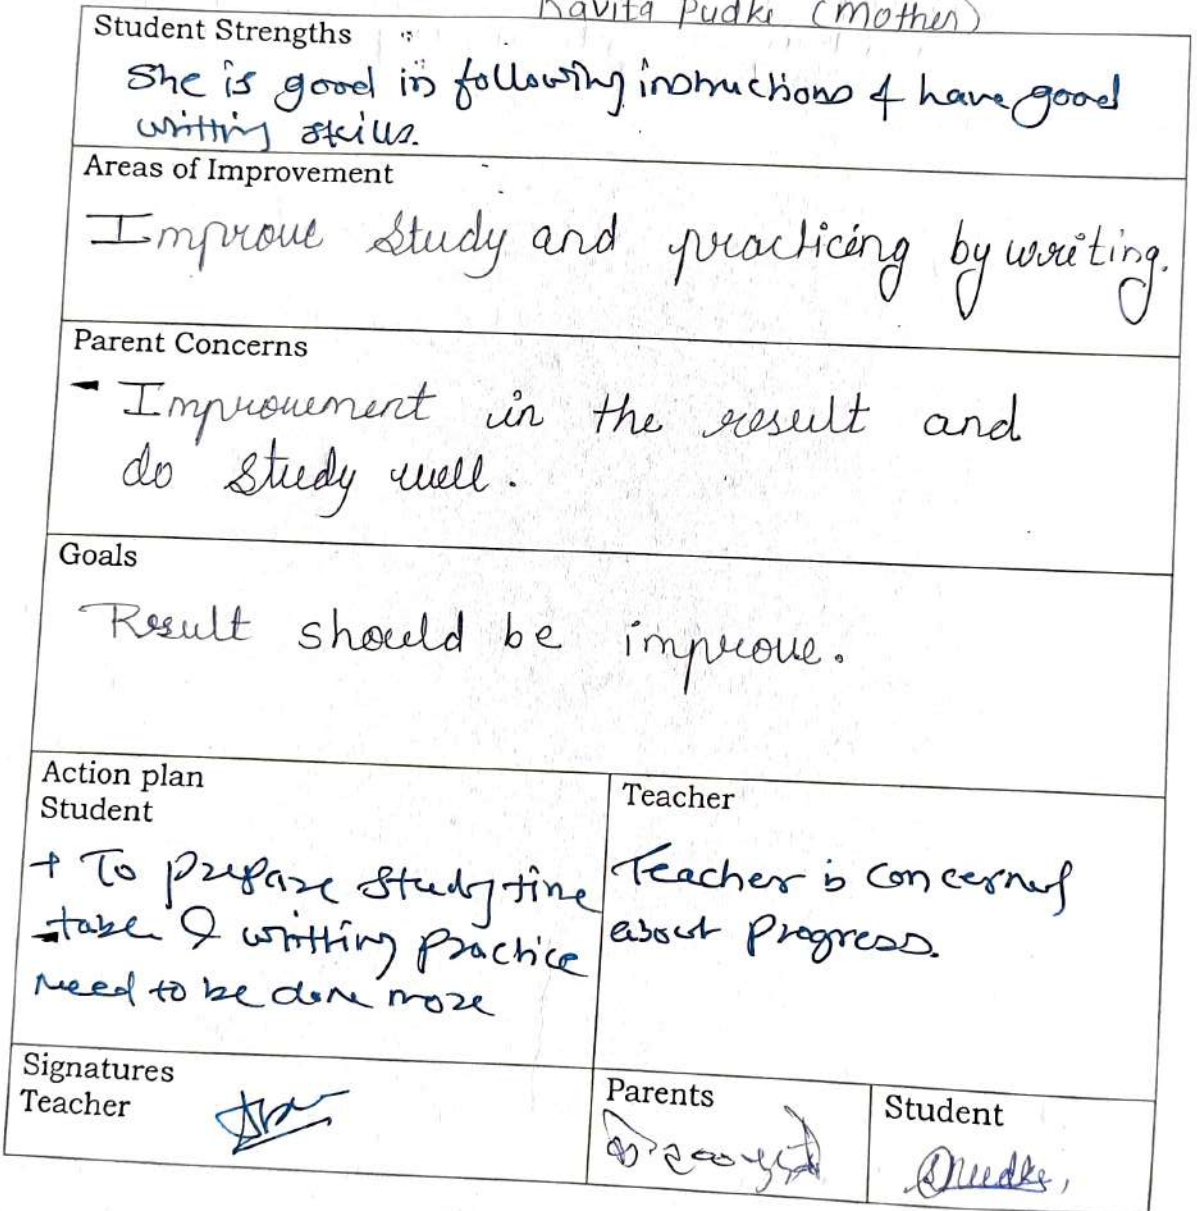 Kavita Pudke (Mother)
Student Strengths
She is good in following instructions & have good
writting skills.
Areas of Improvement
Improve study and practicing by writing.
Parent Concerns
- Improvement in the result and
do study well.
Goals
Result should be improve.
Action plan
Student
+ To prepare study time
table & writting practice
need to be done more
Teacher
Teacher is concerned
about progress.
Signatures
Teacher
Parents
Student